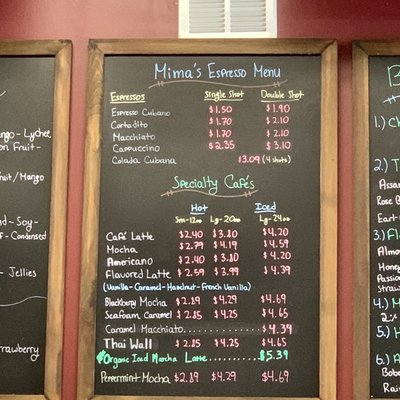 Mima's Espresso Menu
Espressos Single Shot Double Shot
Espresso Cubano $1.50 $1.90
Cortadito $1.70 $2.10
Macchiato $1.70 $2.10
Cappuccino $2.35 $3.10
Colada Cubana $3.09 (4 shots)
Specialty Cafés
Hot Iced
Sm-12oz Lg-20oz Lg-24oz
Café Latte $2.40 $3.80 $4.20
Mocha $2.79 $4.19 $4.59
Americano $2.40 $3.80 $4.20
Flavored Latte $2.59 $3.99 $4.39
(Vanilla-Caramel-Hazelnut-French Vanilla)
Blackberry Mocha $2.89 $4.29 $4.69
Seafoam Caramel $2.85 $4.25 $4.65
Caramel Macchiato............ $4.39
Thai Wall $2.85 $4.25 $4.65
Organic Iced Matcha Latte ........ $5.39
Peppermint Mocha $2.89 $4.29 $4.69
Lychee
Fruit-
Fruit/Mango
Soy-
Condensed
Jellies
1.)
2.)
Rose
East
3.)
Honey
4.)
2%
5.)
6.)